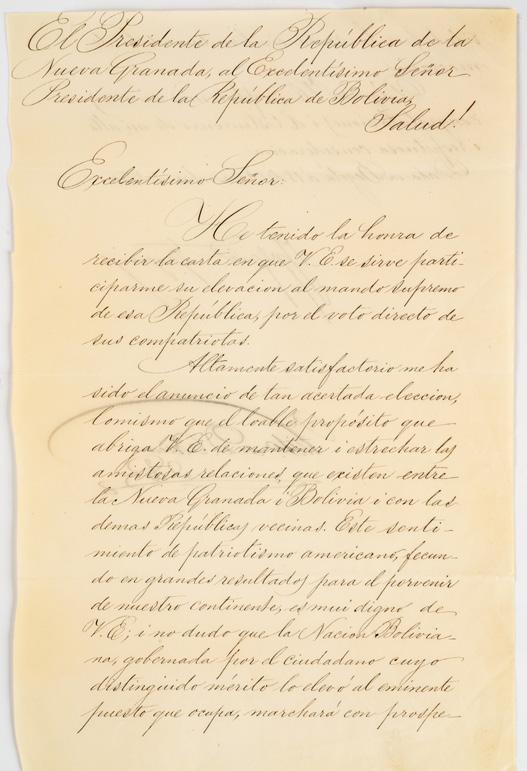 El Presidente de la República de la
Nueva Granada, al Excelentísimo Señor
Presidente de la República de Bolivia,
Salud!
Excelentísimo Señor:
He tenido la honra de
recibir la carta en que V. E. se sirve parti-
ciparme su elevacion al mando supremo
de esa República, por el voto directo de
sus compatriotas.
Altamente satisfactorio me ha
sido el anuncio de tan acertada eleccion,
lo mismo que el loable propósito que
abriga V. E. de mantener i estrechar las
amistosas relaciones que existen entre
la Nueva Granada i Bolivia i con las
demas Repúblicas vecinas. Este senti-
miento de patriotismo americano, fecun-
do en grandes resultados para el porvenir
de nuestro continente, es mui digno de
V. E; i no dudo que la Nacion Bolivia-
na, gobernada por el ciudadano cuyo
distinguido mérito lo elevó al eminente
puesto que ocupa, marchará con prospe-